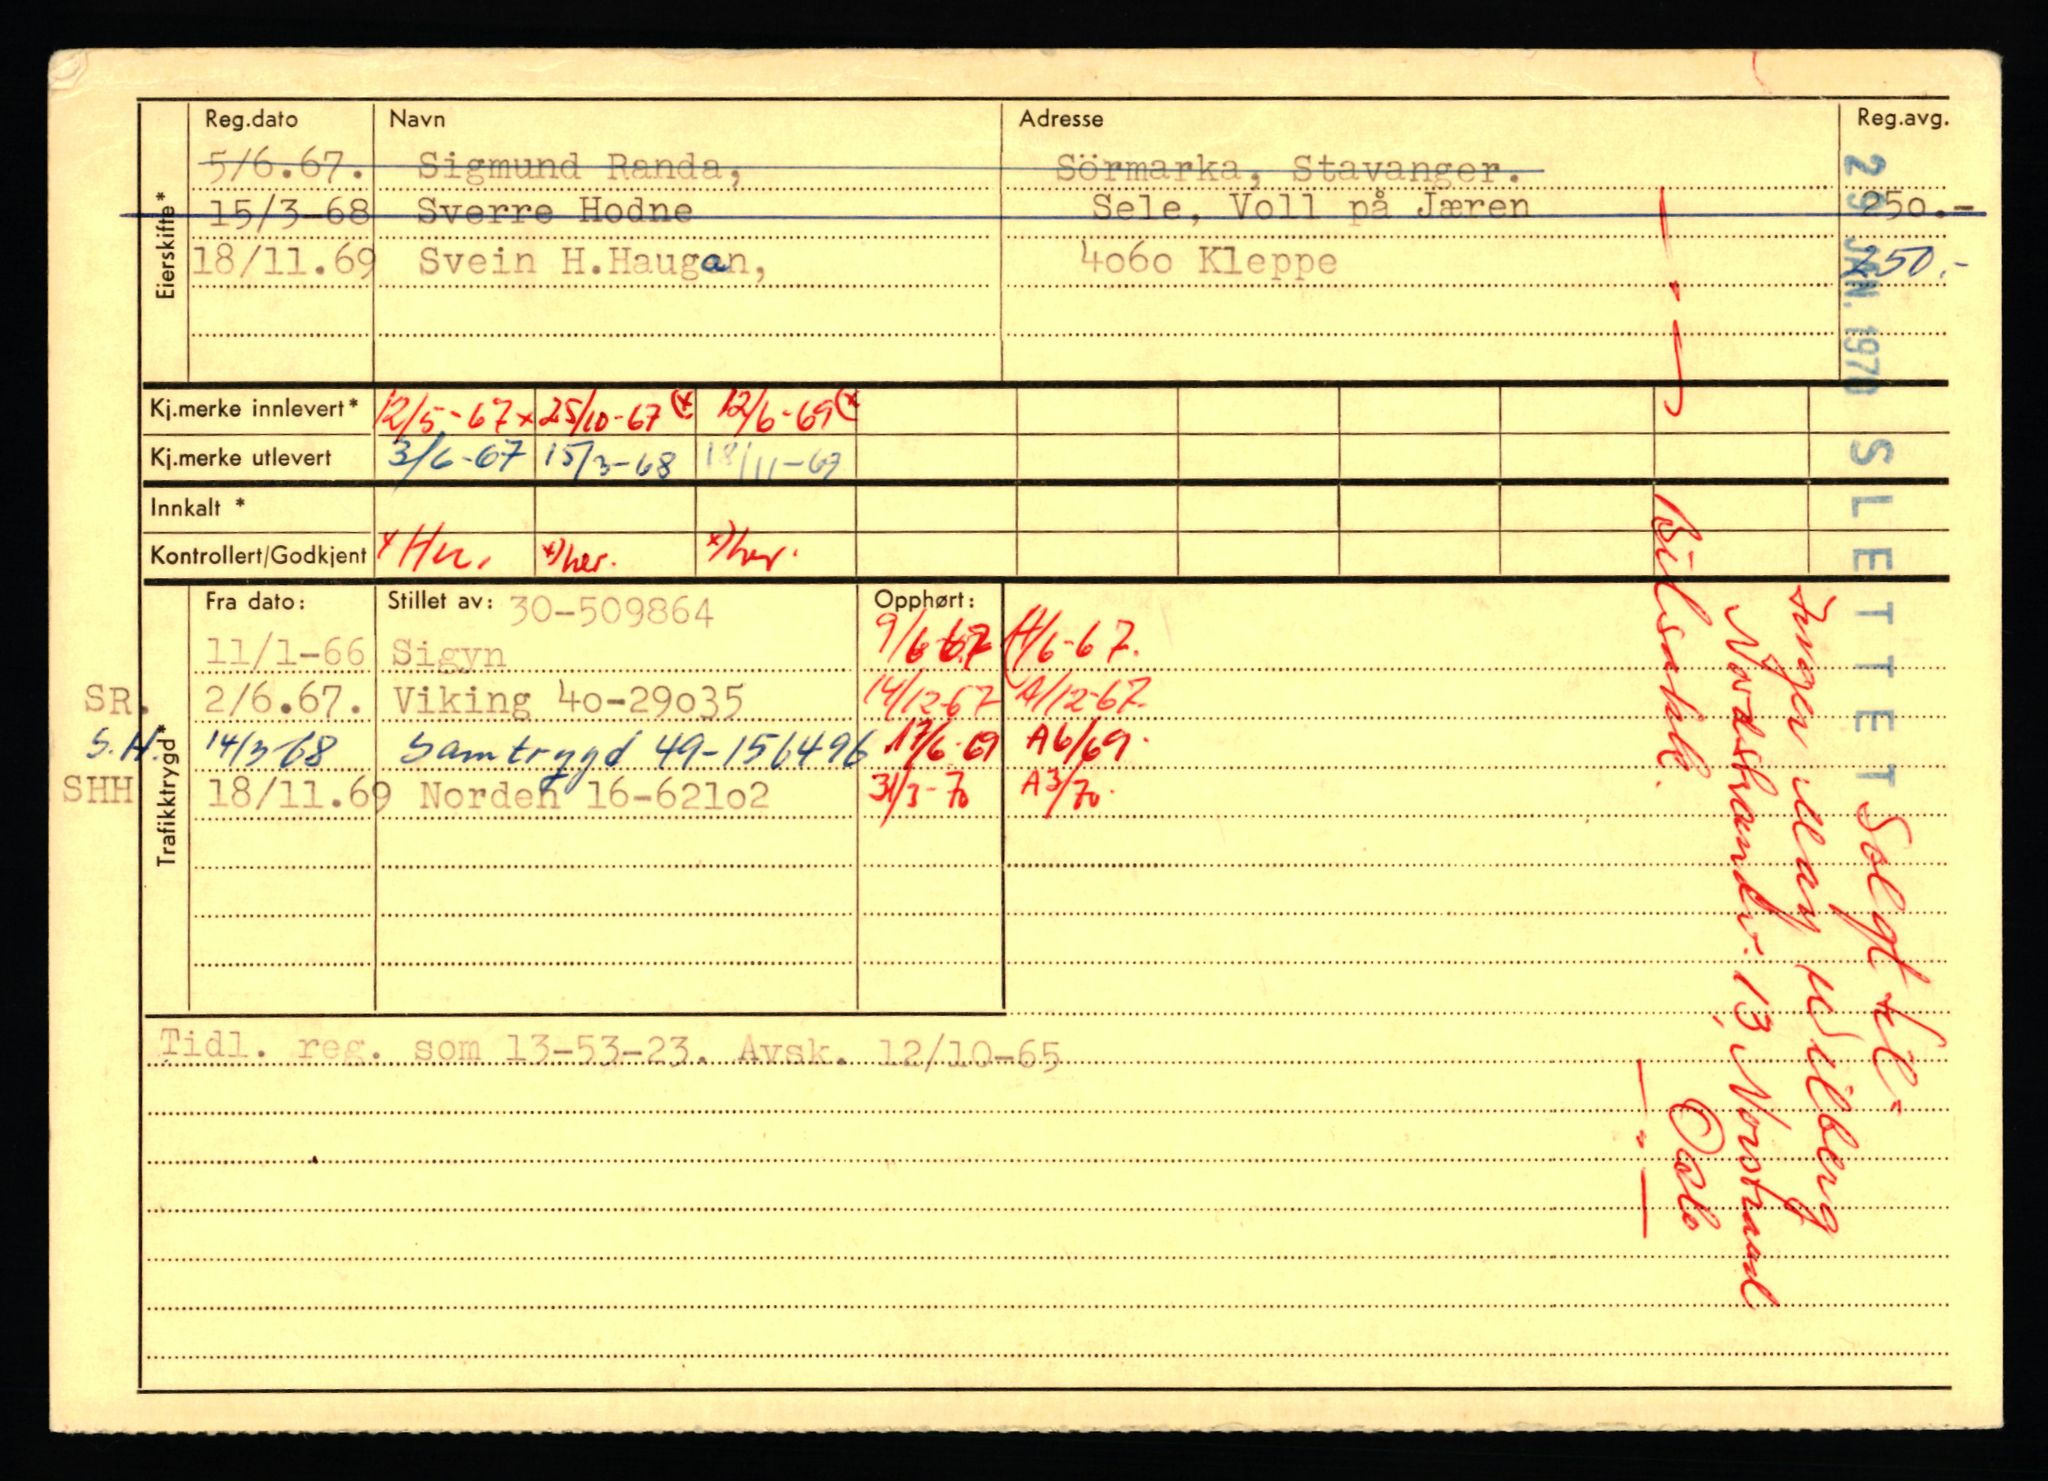 Reg.dato Navn Adresse Reg.avg.
5/6.67. Sigmund Randa, Sörmarka, Stavanger.
15/3-68 Sverre Hodne Sele, Voll på Jæren 250.-
18/11.69 Svein H.Haugan, 4o6o Kleppe 250.-
Eierskifte*
Kj.merke innlevert* 12/5-67 x 25/10-67 (x 12/6-69 (x
Kj.merke utlevert 3/6-67 15/3-68 18/11-69
Innkalt *
Kontrollert/Godkjent x Her. x) her. x) her.
Trafikktrygd*
Fra dato: Stillet av: 30-509864 Opphørt:
11/1-66 Sigyn 9/6-67 A/6-67.
SR. 2/6.67. Viking 4o-29o35 14/12-67 A/12-67.
S.H. 14/3-68 Samtrygd 49-156496 17/6-69 A6/69.
SHH 18/11.69 Norden 16-621o2 31/3-70 A3/70.
Tidl. reg. som 13-53-23. Avsk. 12/1o-65
29 JAN. 1970 SLETTET
Solgt til
Inger Mary Wilberg
Nordstrandv. 13, Norstrand
Oslo
Bilsakk.